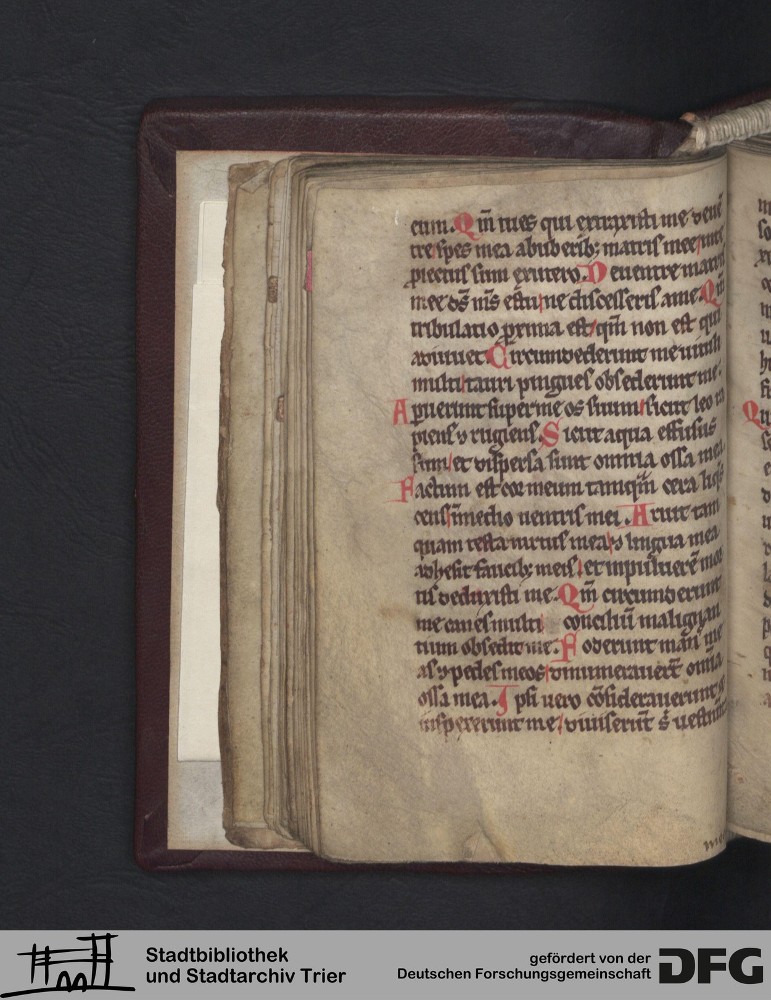 eum. Qm̄ tu es qui extraxisti me de uen
tre spes mea ab uberib; matris mee in te
proiectus sum ex utero. De uentre matris
mee ds̄ ms̄ es tu ne discesseris a me. Qm̄
tribulatio proxima est qm̄ non est qui
adiuuet. Circumdederunt me uituli
multi tauri pingues obsederunt me.
Aperuerunt super me os suum sicut leo ra
piens & rugiens. Sicut aqua effusus
sum et dispersa sunt omnia ossa mea
Factum est cor meum tamqm̄ cera liqs̄
cens in medio uentris mei. Aruit tam
quam testa uirtus mea & lingua mea
adhesit faucib; meis et in puluerē mor
tis deduxisti me. Qm̄ circumdederunt
me canes multi conciliū malignan
tium obsedit me. Foderunt man' me
as & pedes meos dinumerauert̄ om̄ia
ossa mea. Ipsi uero cōsiderauerunt &
inspexerunt me diuiserūt s' uestim̄ta
Stadtbibliothek
und Stadtarchiv Trier
gefördert von der
Deutschen Forschungsgemeinschaft
DFG